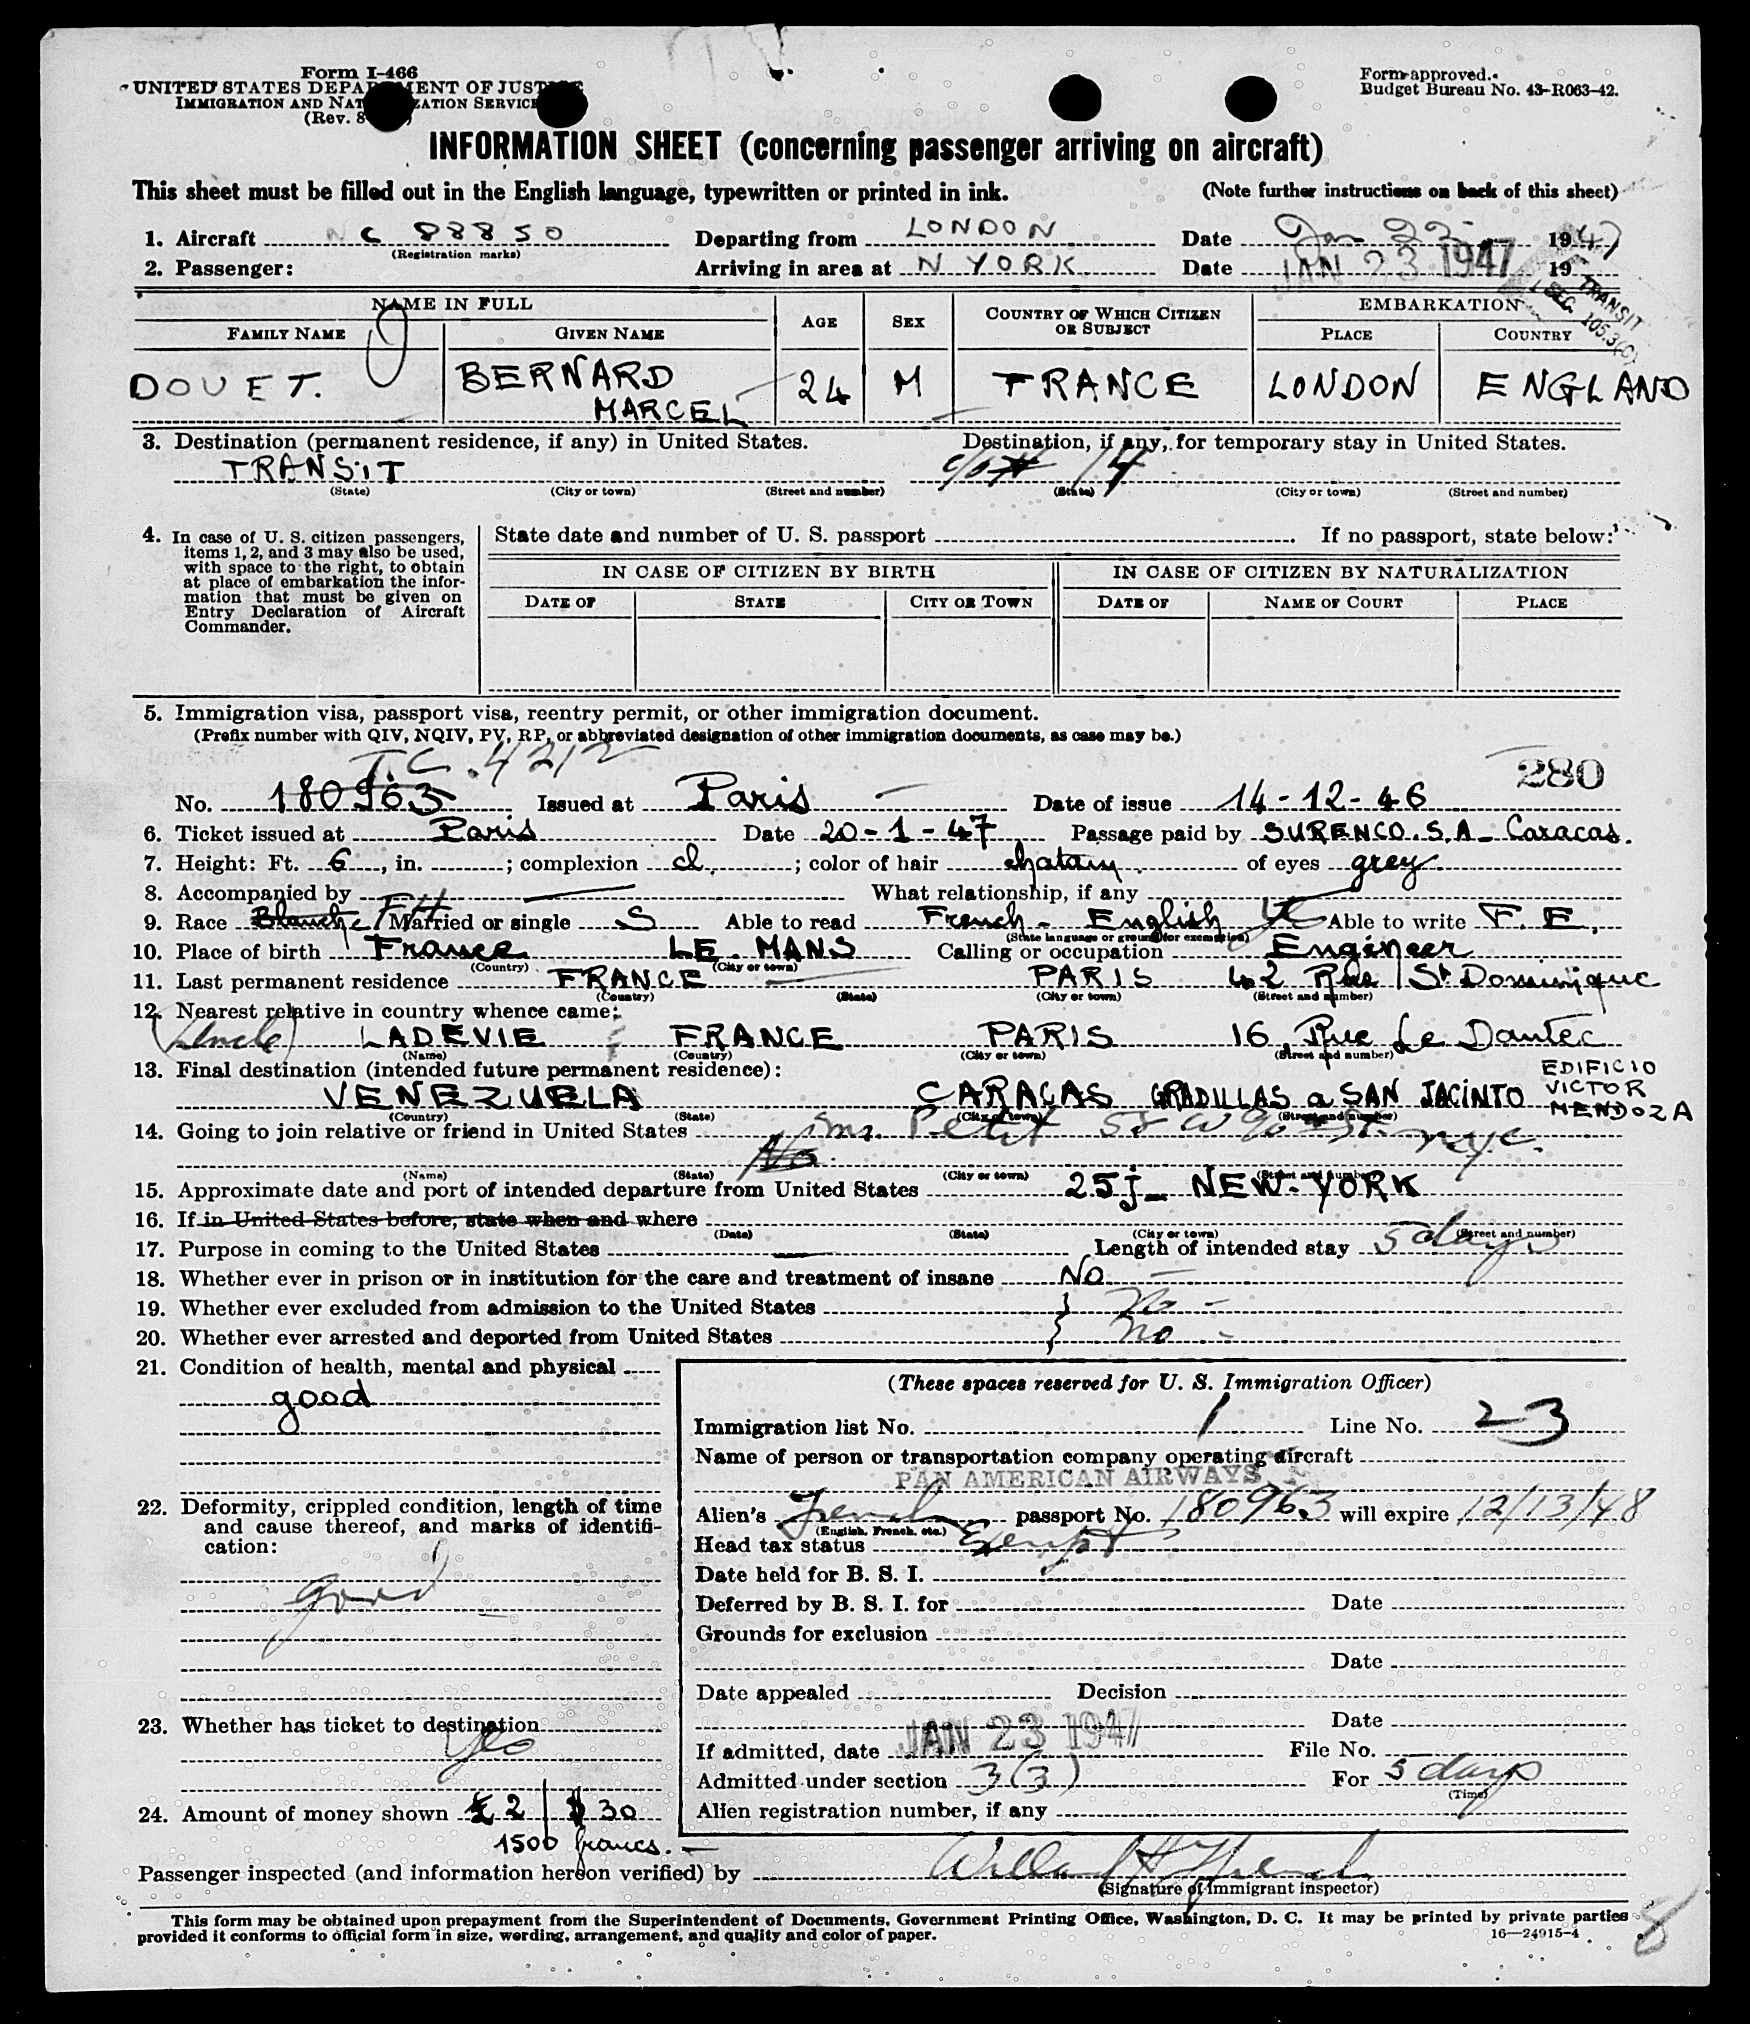 Form I-466
UNITED STATES DEPARTMENT OF JUSTICE
IMMIGRATION AND NATURALIZATION SERVICE
(Rev. 8
Form approved.
Budget Bureau No. 43-R063-42.
INFORMATION SHEET (concerning passenger arriving on aircraft)
This sheet must be filled out in the English language, typewritten or printed in ink. (Note further instructions on back of this sheet)
1. Aircraft NC 88850 Departing from LONDON Date Jan 22 1947
(Registration marks)
2. Passenger: Arriving in area at N YORK Date JAN 23 1947 19
TRANSIT
SEC. 105.3(C)
NAME IN FULL AGE SEX COUNTRY OF WHICH CITIZEN OR SUBJECT EMBARKATION
FAMILY NAME GIVEN NAME PLACE COUNTRY
DOUET. BERNARD MARCEL 24 M FRANCE LONDON ENGLAND
3. Destination (permanent residence, if any) in United States. Destination, if any, for temporary stay in United States.
TRANSIT 14
(State) (City or town) (Street and number) (State) (City or town) (Street and number)
4. In case of U. S. citizen passengers, items 1, 2, and 3 may also be used, with space to the right, to obtain at place of embarkation the information that must be given on Entry Declaration of Aircraft Commander.
State date and number of U. S. passport If no passport, state below:
IN CASE OF CITIZEN BY BIRTH IN CASE OF CITIZEN BY NATURALIZATION
DATE OF STATE CITY OR TOWN DATE OF NAME OF COURT PLACE
5. Immigration visa, passport visa, reentry permit, or other immigration document.
(Prefix number with QIV, NQIV, PV, RP, or abbreviated designation of other immigration documents, as case may be.)
T.C. 4212 280
No. 180963 Issued at Paris Date of issue 14-12-46
6. Ticket issued at Paris Date 20-1-47 Passage paid by SURENCO. S.A - Caracas.
7. Height: Ft. 6, in. ; complexion cl. ; color of hair chatain of eyes grey
8. Accompanied by — What relationship, if any
9. Race Blanche FH Married or single S Able to read French - English Able to write F. E.
(State language or ground for exemption)
10. Place of birth France LE. MANS Calling or occupation Engineer
(Country) (City or town)
11. Last permanent residence FRANCE — PARIS 42 Rue St Dominique
(Country) (State) (City or town) (Street and number)
12. Nearest relative in country whence came:
(Uncle) LADEVIE FRANCE PARIS 16, Rue Le Dantec
(Name) (Country) (City or town) (Street and number)
13. Final destination (intended future permanent residence):
VENEZUELA CARACAS GRADILLAS a SAN JACINTO EDIFICIO VICTOR MENDOZA
(Country) (State) (City or town) (Street and number)
14. Going to join relative or friend in United States Petit St. nyc.
No.
(Name) (State) (City or town) (Street and number)
15. Approximate date and port of intended departure from United States 25 j - NEW-YORK
16. If in United States before, state when and where
(Date) (State) (City or town) (Street and number)
17. Purpose in coming to the United States — Length of intended stay 5 days
18. Whether ever in prison or in institution for the care and treatment of insane No
19. Whether ever excluded from admission to the United States } No -
20. Whether ever arrested and deported from United States } no -
21. Condition of health, mental and physical
good
22. Deformity, crippled condition, length of time and cause thereof, and marks of identification:
good
23. Whether has ticket to destination
yes
24. Amount of money shown £ 2 | $ 30
1500 francs. -
(These spaces reserved for U. S. Immigration Officer)
Immigration list No. 1 Line No. 23
Name of person or transportation company operating aircraft
PAN AMERICAN AIRWAYS
Alien's French passport No. 180963 will expire 12/13/48
(English, French, etc.)
Head tax status Exempt
Date held for B. S. I.
Deferred by B. S. I. for Date
Grounds for exclusion
Date
Date appealed Decision
Date
If admitted, date JAN 23 1947 File No.
Admitted under section 3(3) For 5 days
(Time)
Alien registration number, if any
Passenger inspected (and information hereon verified) by
(Signature of immigrant inspector)
This form may be obtained upon prepayment from the Superintendent of Documents, Government Printing Office, Washington, D. C. It may be printed by private parties
provided it conforms to official form in size, wording, arrangement, and quality and color of paper. 16—24915-4
8